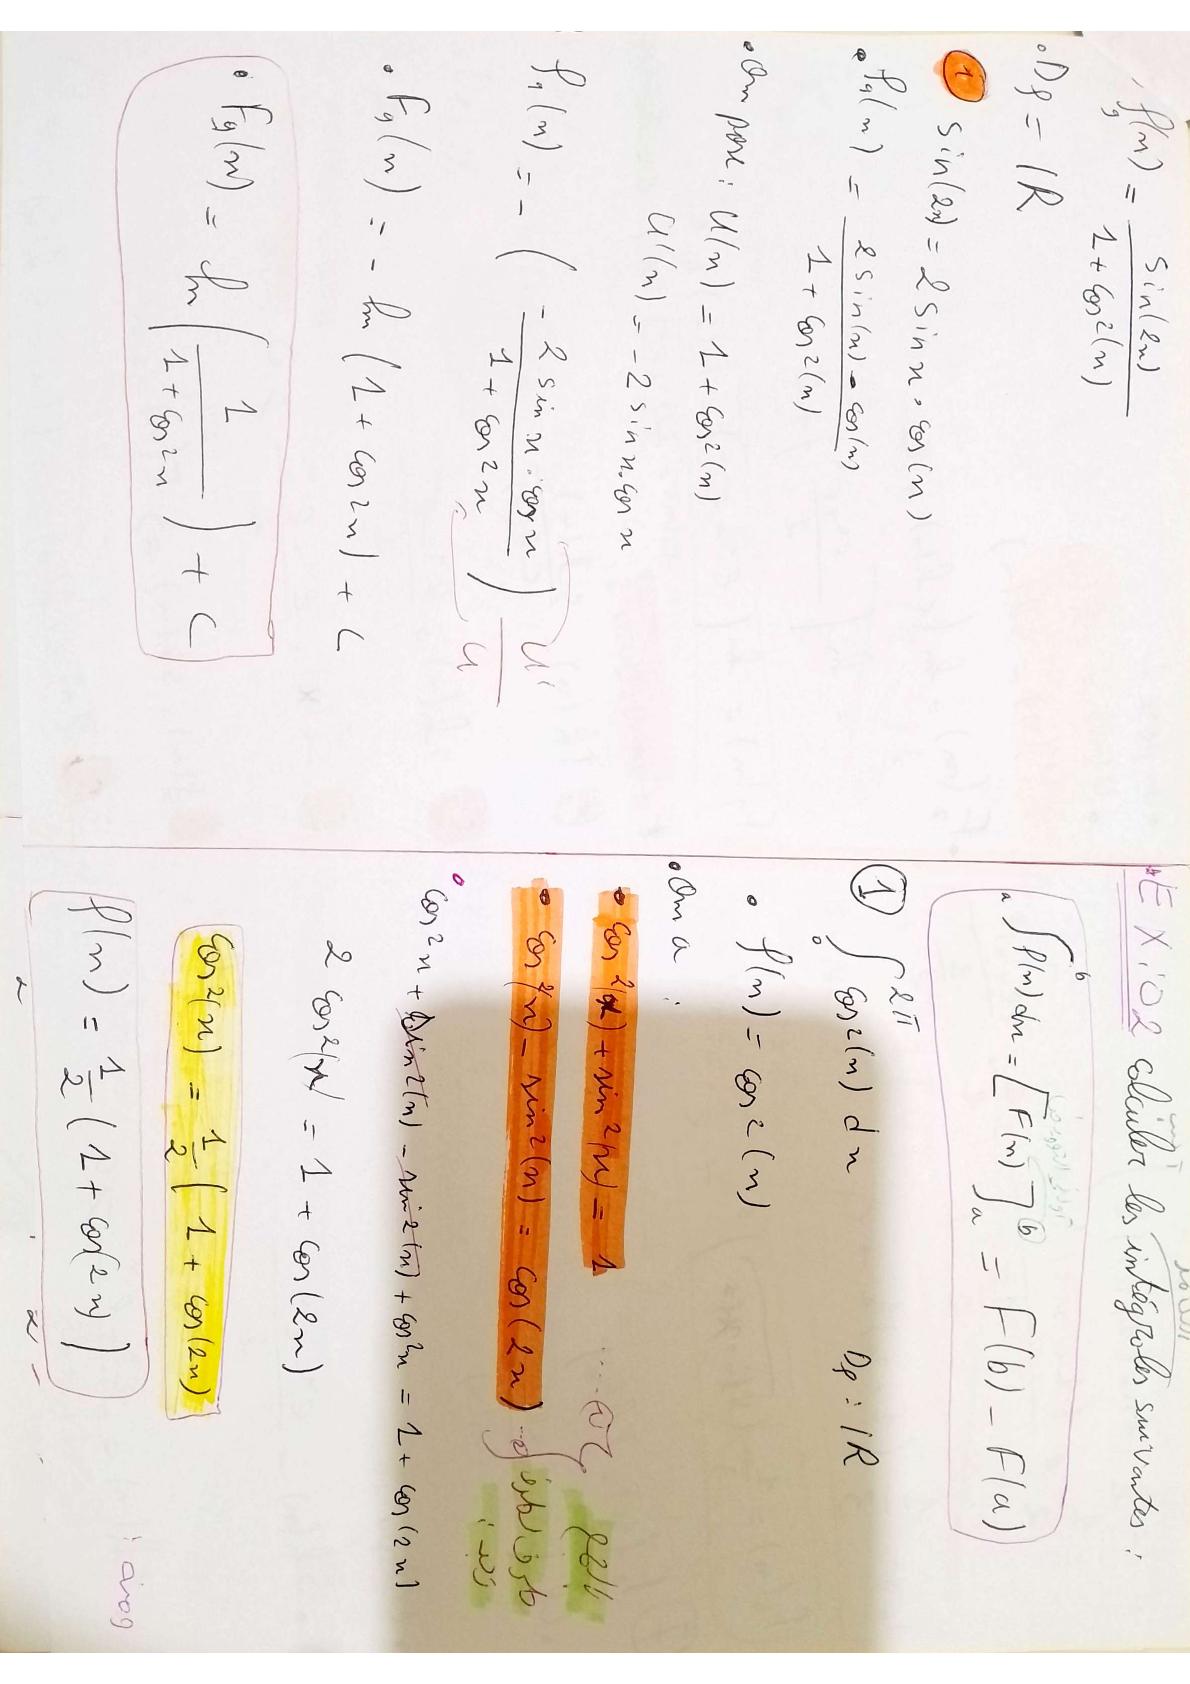 f₉(x) = sin(2x) / (1 + cos²(x))
• Df = IR
① sin(2x) = 2 sin x . cos(x)
• f₉(x) = 2 sin(x) . cos(x) / (1 + cos²(x))
• On pose : U(x) = 1 + cos²(x)
U'(x) = -2 sin x . cos x
f₉(x) = - ( -2 sin x . cos x / (1 + cos² x) ) U' / U
• F₉(x) = - ln (1 + cos² x) + C
• F₉(x) = ln ( 1 / (1 + cos² x) ) + C
EX:02 calculer les intégrales suivantes :
ₐ∫ᵇ f(x) dx = [F(x)]ₐᵇ = F(b) - F(a)
① ₀∫²π cos²(x) dx Df : IR
• f(x) = cos²(x)
• On a :
• cos²(x) + sin²(x) = 1 ...
• cos²(x) - sin²(x) = cos(2x) ...
cos² x + sin²(x) - sin²(x) + cos² x = 1 + cos(2x)
2 cos²(x) = 1 + cos(2x)
cos²(x) = 1/2 ( 1 + cos(2x)
f(x) = 1/2 ( 1 + cos(2x) )